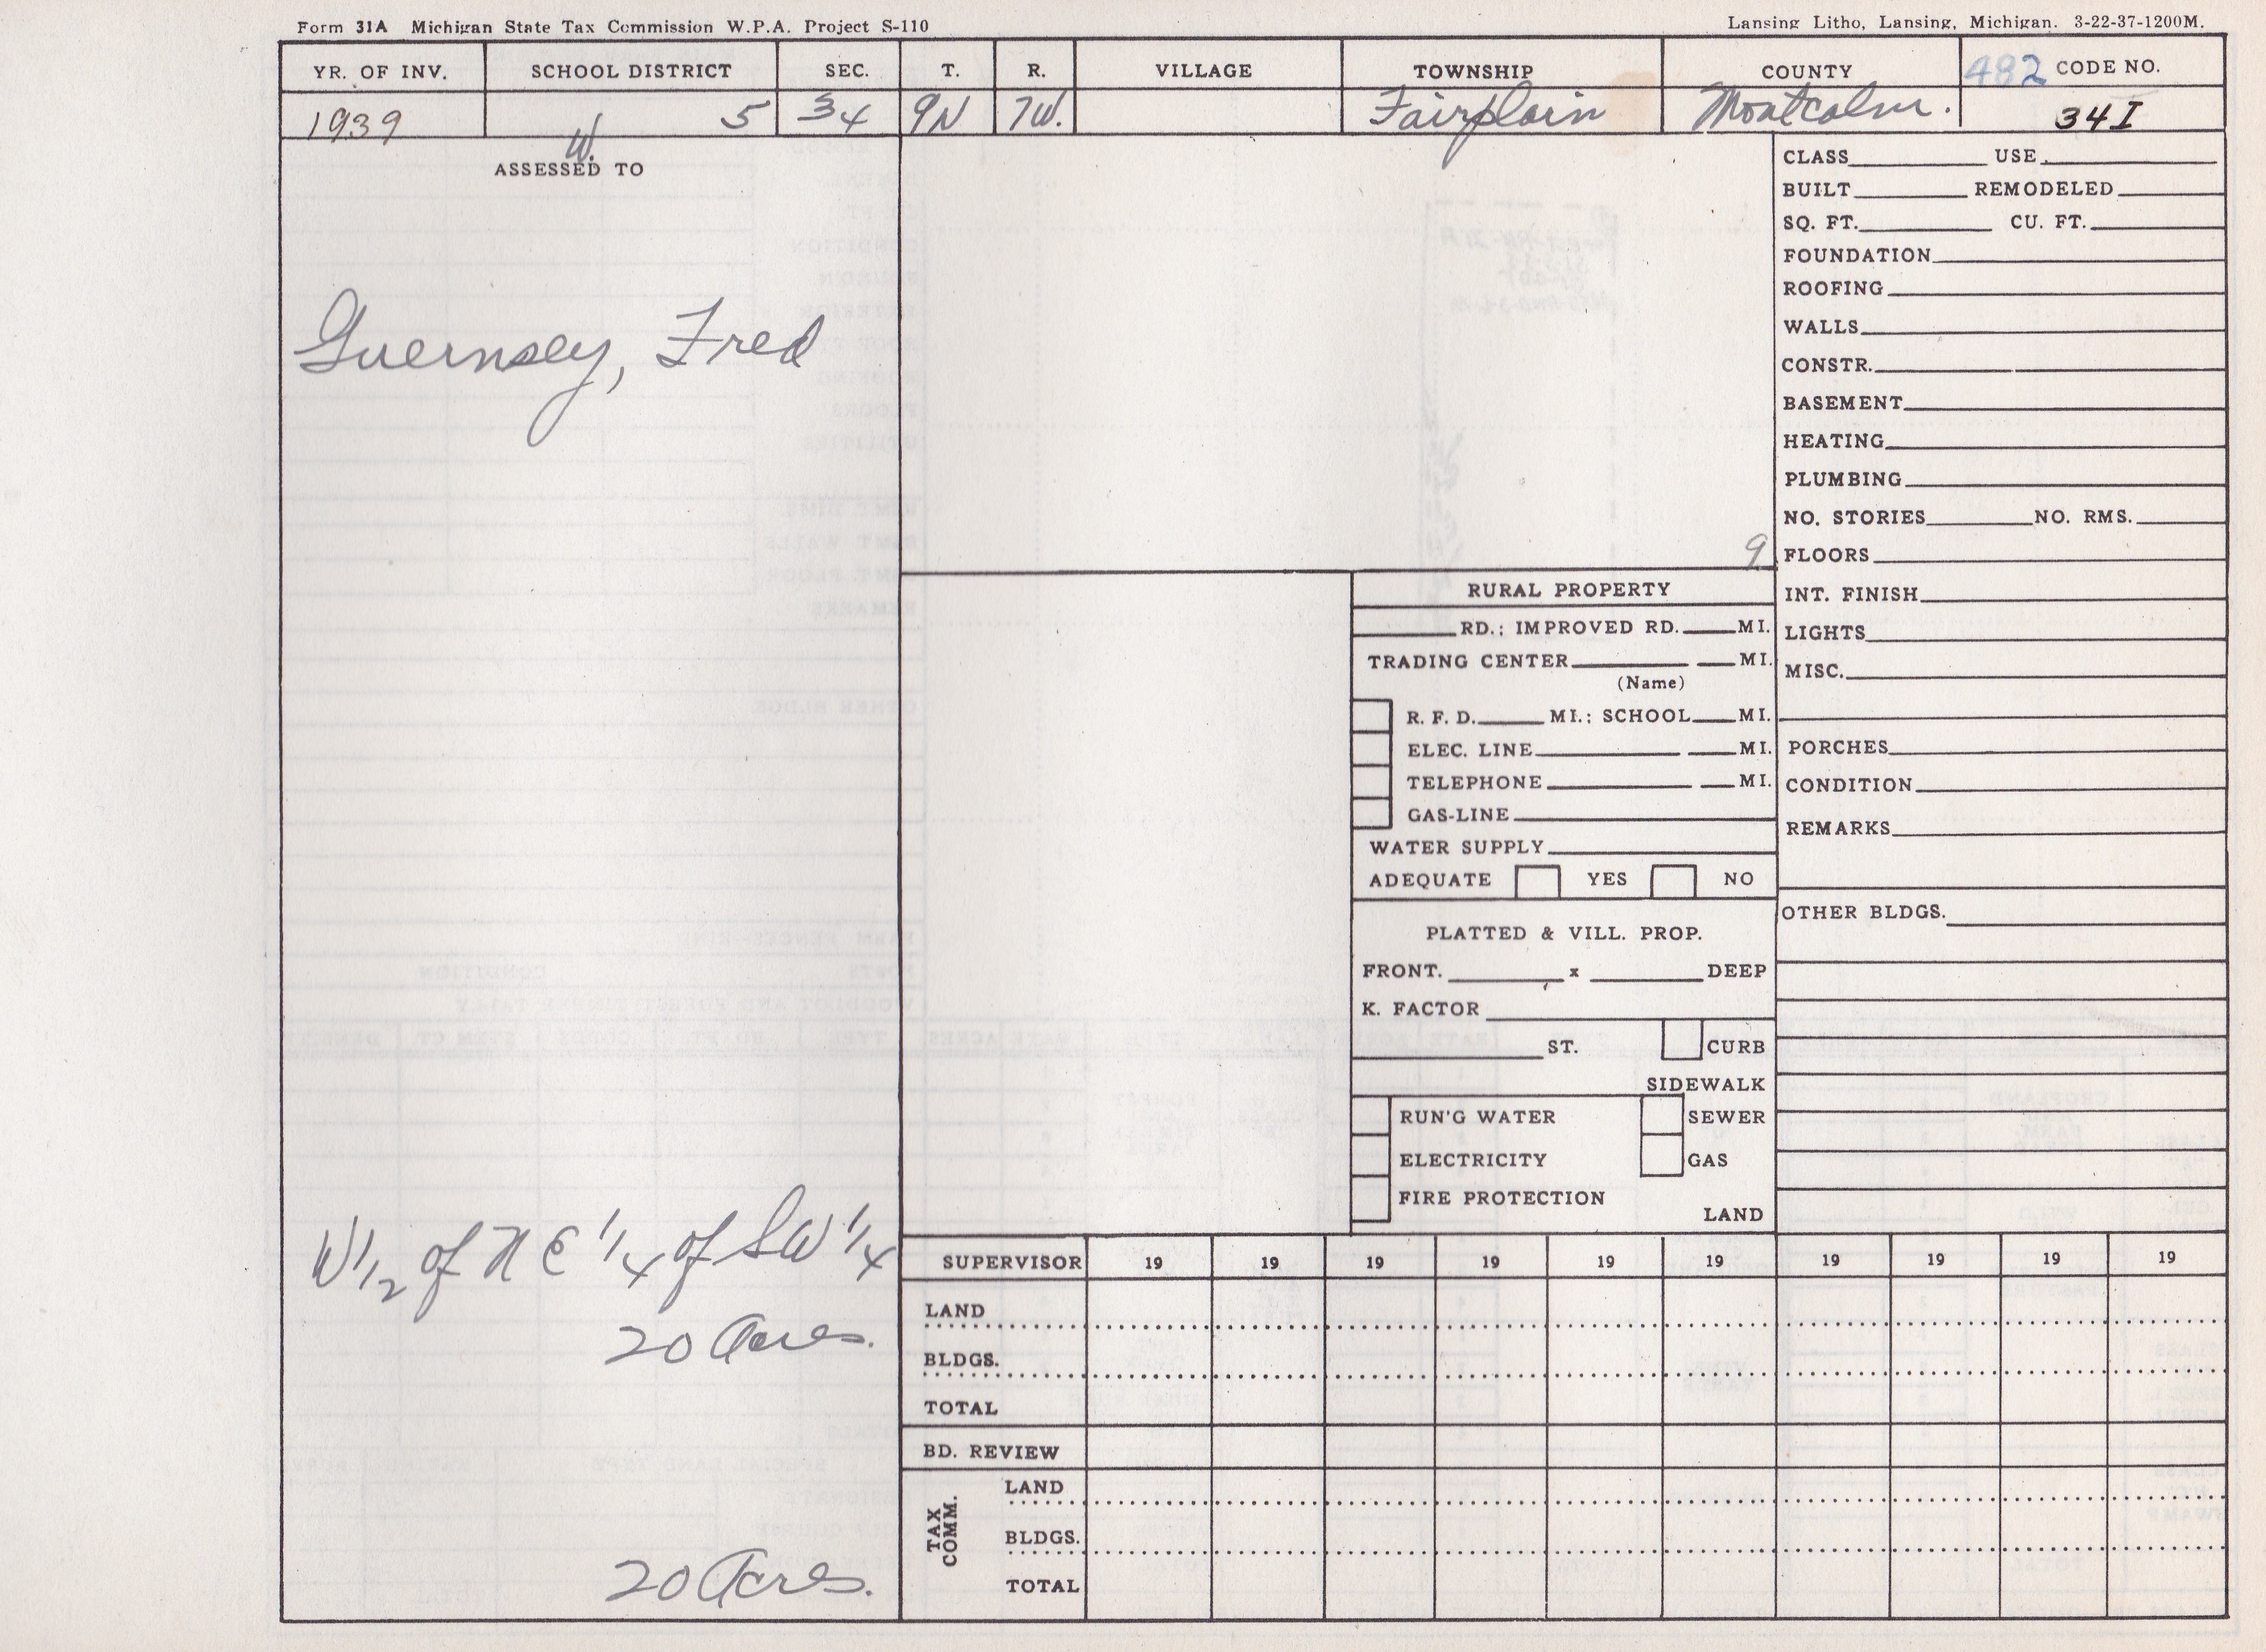 Form 31A Michigan State Tax Commission W.P.A. Project S-110
Lansing Litho, Lansing, Michigan. 3-22-37-1200M.
YR. OF INV. SCHOOL DISTRICT SEC. T. R. VILLAGE TOWNSHIP COUNTY 482 CODE NO.
1939 5 34 9N 7W. Fairplain Montcalm. 34I
W.
ASSESSED TO
Guernsey, Fred
W 1/2 of N E 1/4 of SW 1/4
20 Acres.
20 Acres.
9
RURAL PROPERTY
RD.; IMPROVED RD. MI.
TRADING CENTER MI.
(Name)
R. F. D. MI.; SCHOOL MI.
ELEC. LINE MI.
TELEPHONE MI.
GAS-LINE
WATER SUPPLY
ADEQUATE YES NO
PLATTED & VILL. PROP.
FRONT. x DEEP
K. FACTOR
ST. CURB
SIDEWALK
RUN'G WATER SEWER
ELECTRICITY GAS
FIRE PROTECTION
LAND
CLASS USE
BUILT REMODELED
SQ. FT. CU. FT.
FOUNDATION
ROOFING
WALLS
CONSTR.
BASEMENT
HEATING
PLUMBING
NO. STORIES NO. RMS.
FLOORS
INT. FINISH
LIGHTS
MISC.
PORCHES
CONDITION
REMARKS
OTHER BLDGS.
SUPERVISOR 19 19 19 19 19 19 19 19 19 19
LAND
BLDGS.
TOTAL
BD. REVIEW
TAX COMM.
LAND
BLDGS.
TOTAL